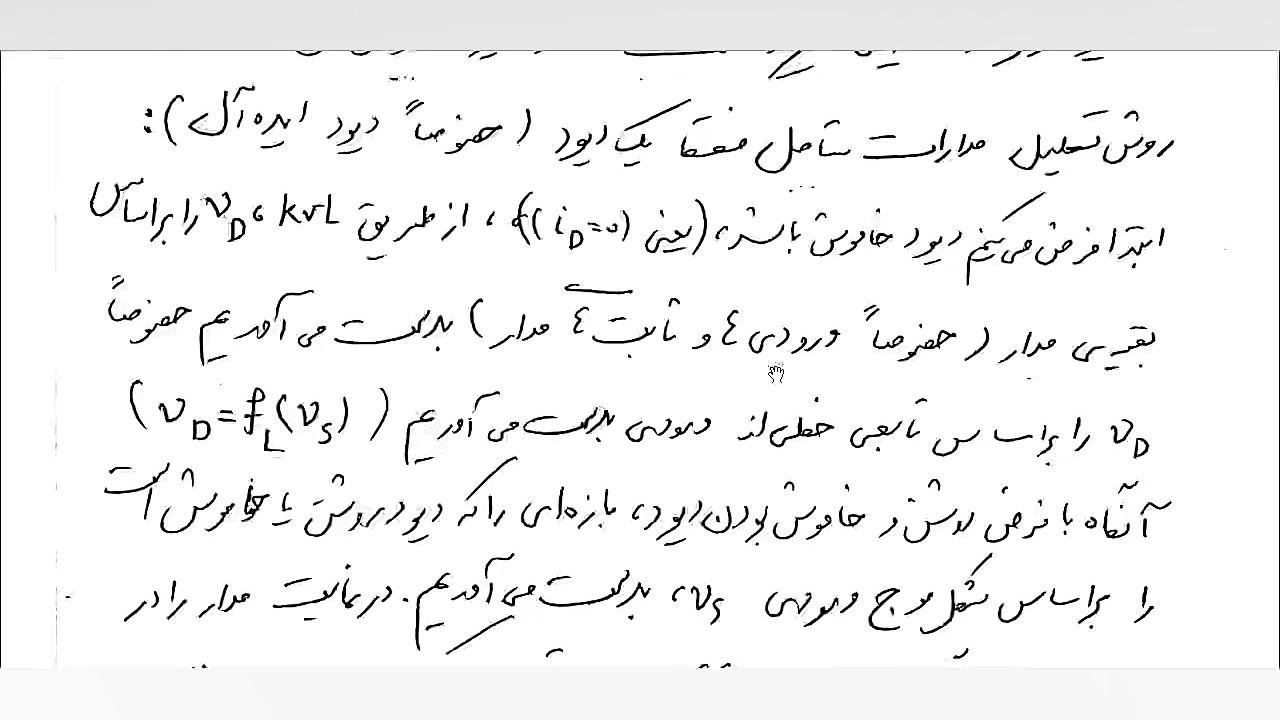 روش تحلیل مدارات شامل فقط یک دیود (خصوصاً دیود ایده‌آل):
ابتدا فرض می‌کنیم دیود خاموش باشد، (یعنی (i_D=0))، از طریق kvL، v_D را براساس
بقیه‌ی مدار (خصوصاً ورودی‌ها و ثابت‌ها مدار) بدست می‌آوریم خصوصاً
v_D را براساس تابعی خطی از ورودی بدست می‌آوریم (v_D=f_L(v_s))
آنگاه با فرض روشن و خاموش بودن دیود، بازه‌ای را که دیود روشن یا خاموش است
را براساس شکل موج ورودی v_s، بدست می‌آوریم. در نهایت مدار را در